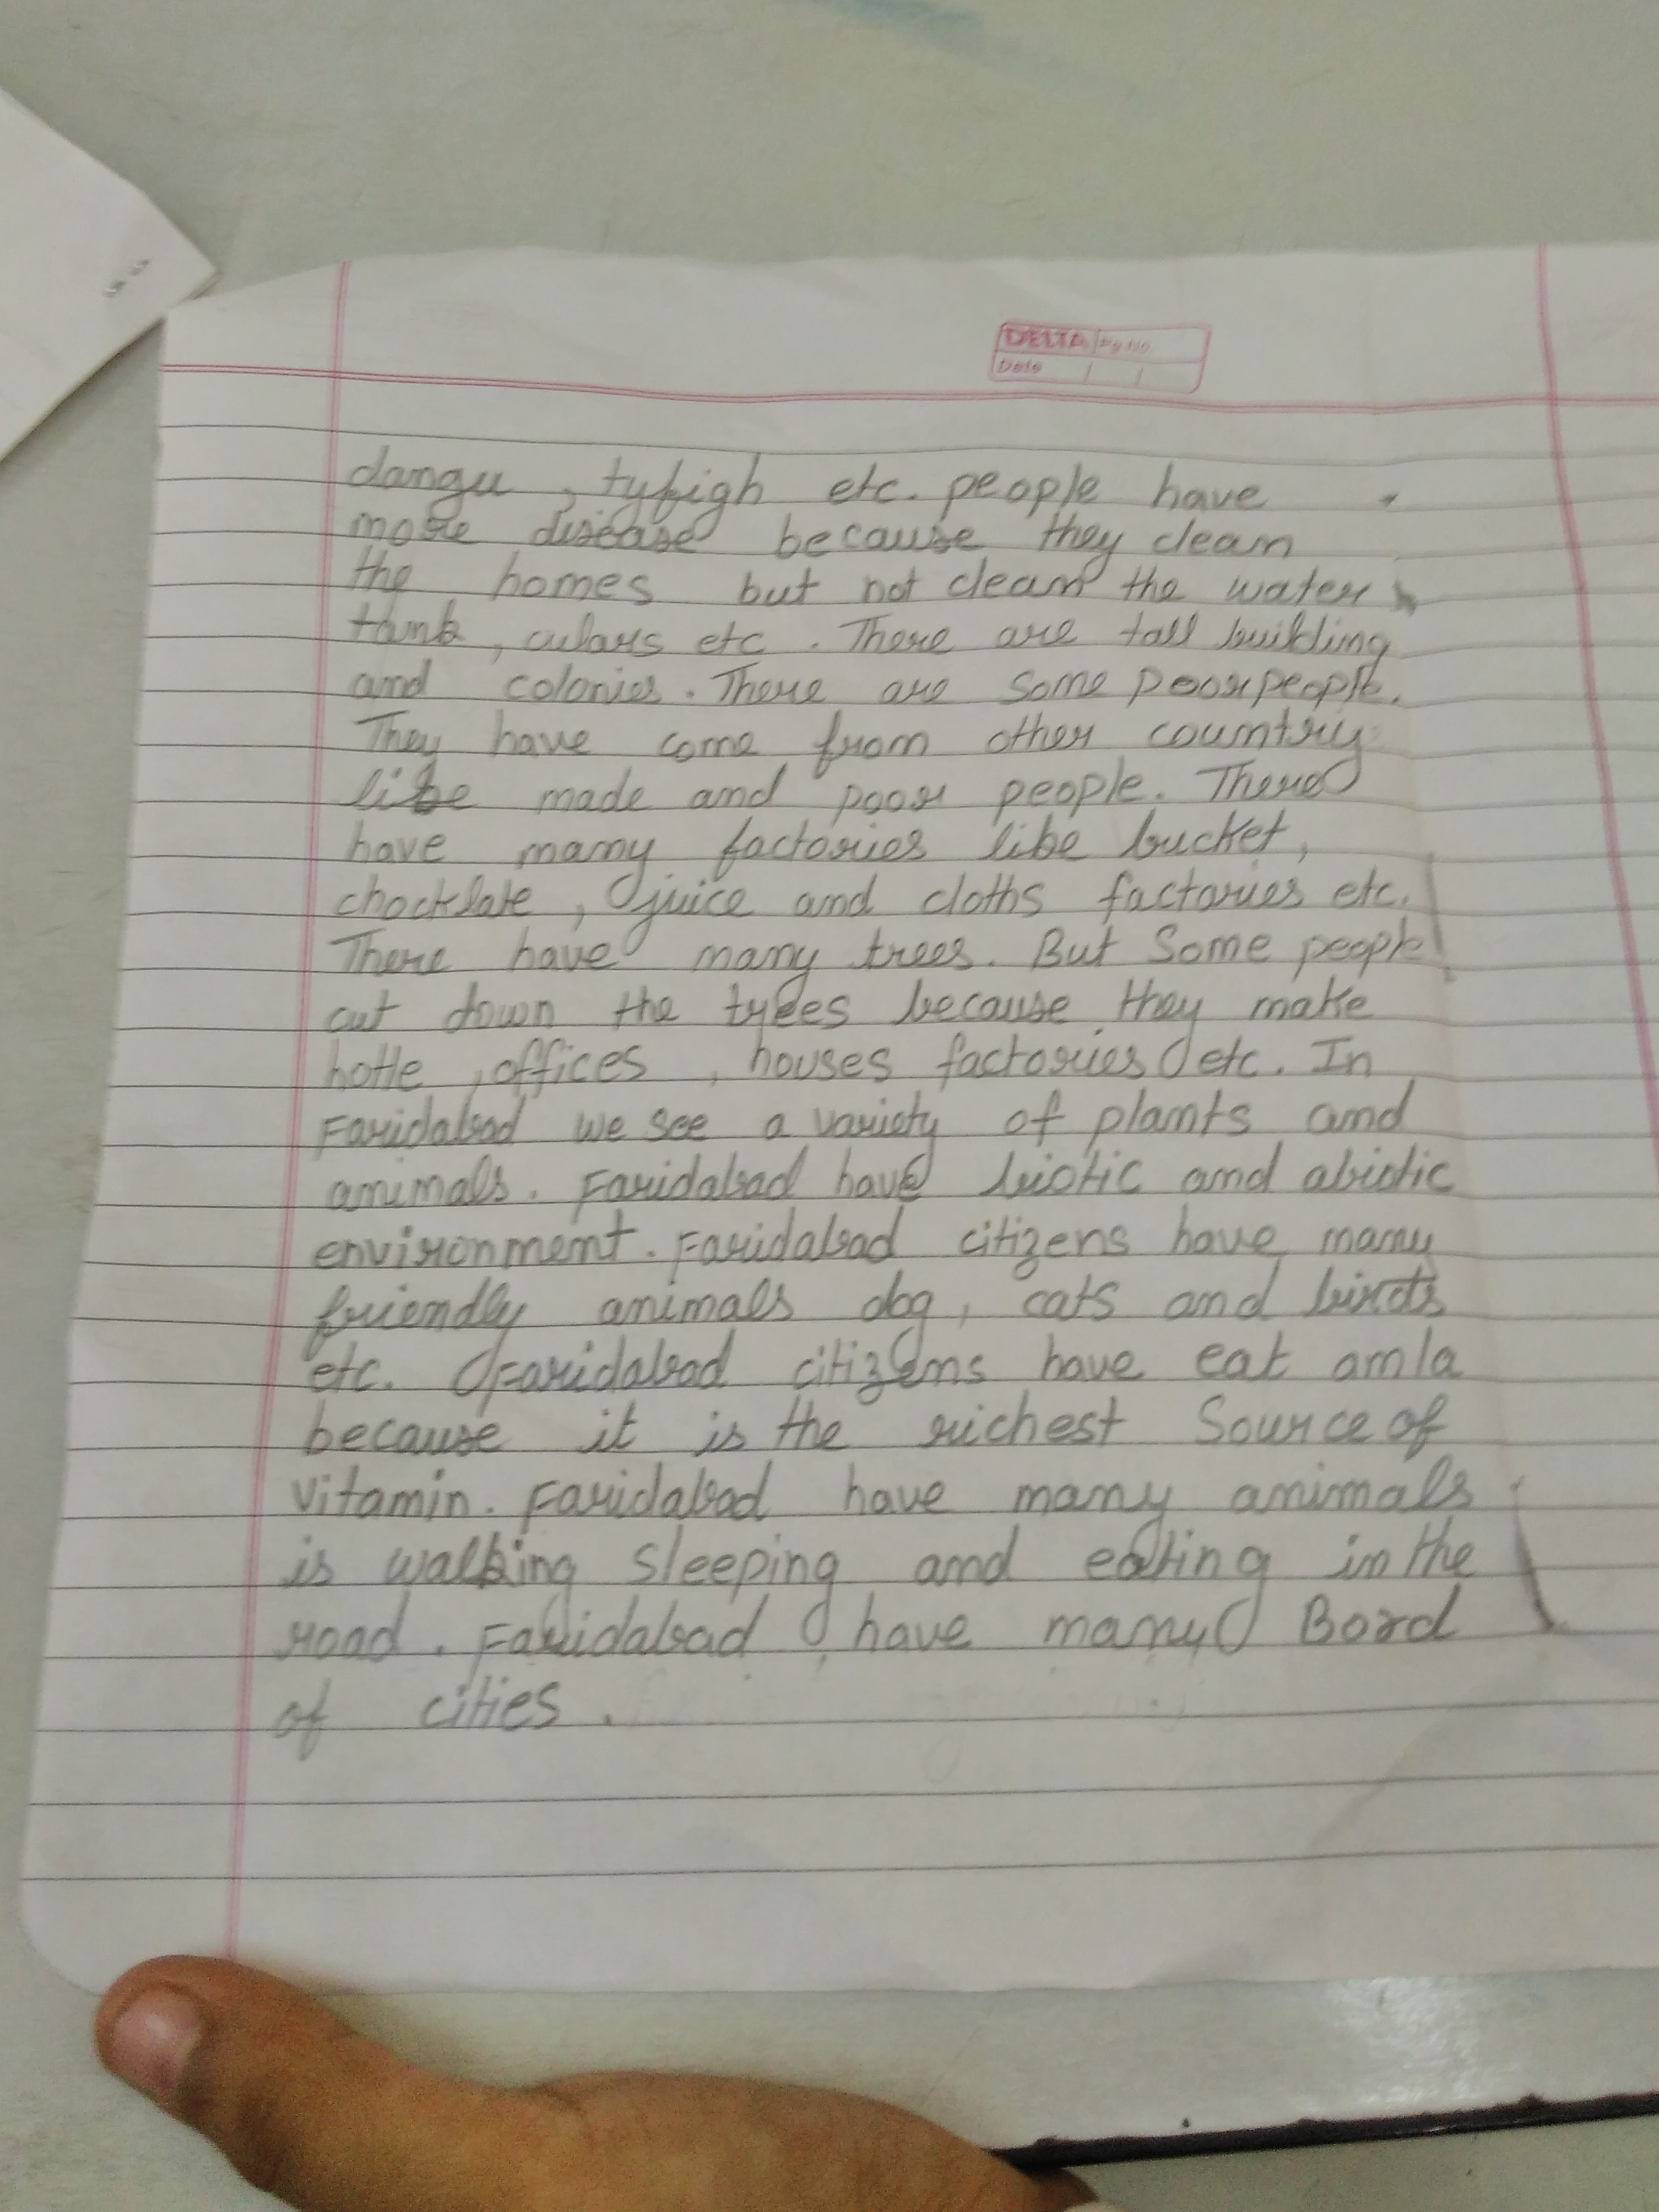 DELTA Pg No.
Date / /
dangu, tyfigh etc. people have
more disease because they clean
the homes but not clean the water
tank, culars etc. There are tall building
and colonies. There are some poor people.
They have come from other country
like made and poor people. There
have many factories like bucket,
chocklate, juice and cloths factories etc.
There have many trees. But Some people
cut down the trees because they make
hotle, offices, houses factories etc. In
Faridabad we see a variety of plants and
animals. Faridabad have biotic and abiotic
environment. Faridabad citizens have many
friendly animals dog, cats and birds
etc. Faridabad citizens have eat amla
because it is the richest Source of
Vitamin. Faridabad have many animals
is walking sleeping and eating in the
road. Faridabad have many Bord
of cities.